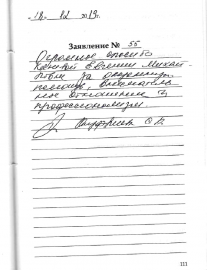 „12“ 12 2019г.
Заявление № 55
Огромное спасибо
Евгении Михай-
ловне за оказанную
помощь, вниматель
ное отношение и
профессионализм.
111